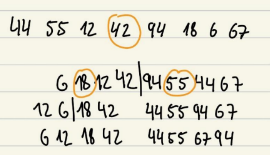 44 55 12 42 94 18 6 67
6 18 12 42 | 94 55 44 67
12 6 | 18 42 44 55 94 67
6 12 18 42 44 55 67 94